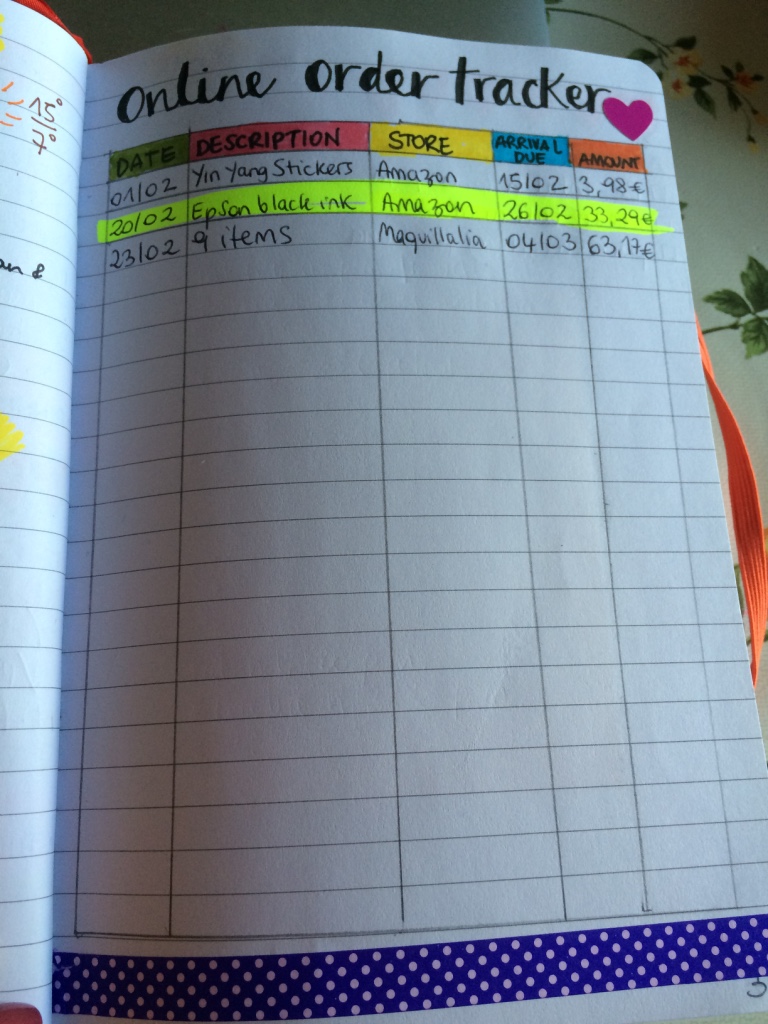 15°
7°
an &
Online Order tracker
DATE DESCRIPTION STORE ARRIVAL DUE AMOUNT
01/02 Yin Yang Stickers Amazon 15/02 3,98€
20/02 Epson black ink Amazon 26/02 33,29€
23/02 9 items Maquillalia 04/03 63,17€